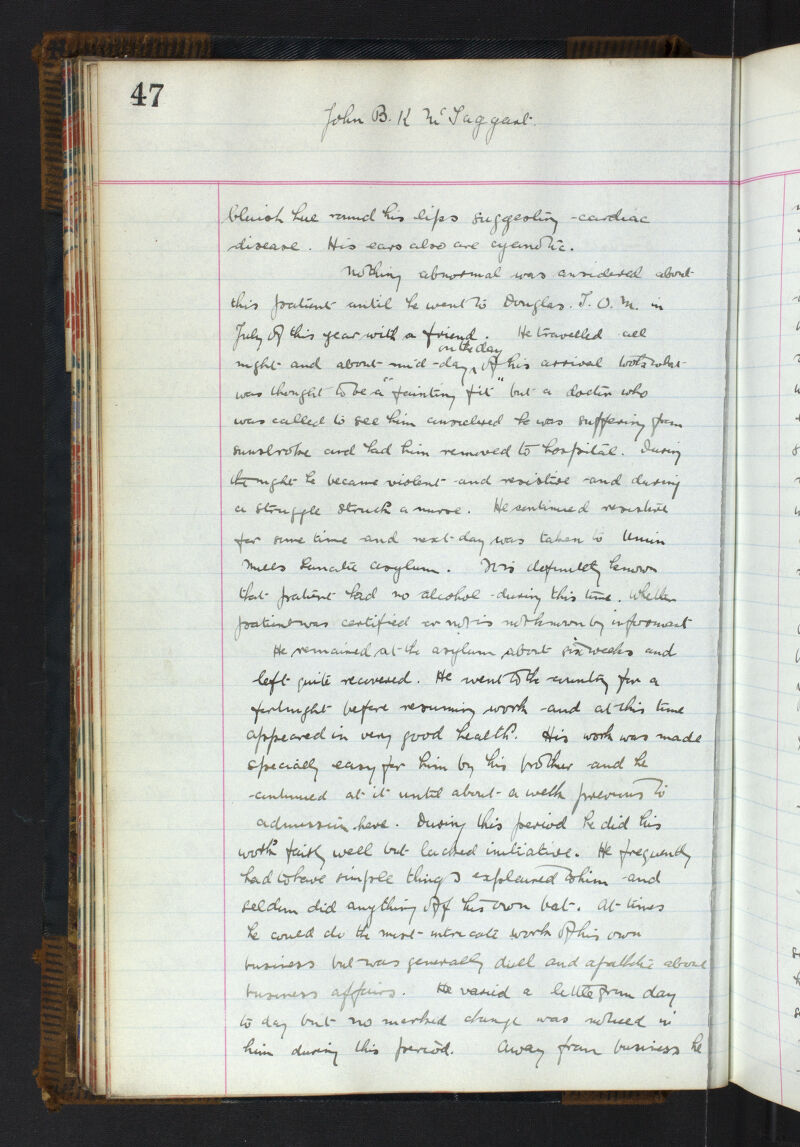 47
John B. K McTaggart.
bluish hue round his lips suggesting cardiac
disease. His ears also are cyanotic.
Nothing abnormal was considered about
this patient until he went to Douglas. I. O. M. in
July of this year with a friend. He travelled all
on the day
night and about mid-day of his arrival took what
was thought to be a "fainting fit" but a doctor who
was called to see him considered he was suffering from
sunstroke and had him removed to hospital. During
the night he became violent and resistive and during
a struggle struck a nurse. He continued resistive
for some time and next day was taken to Union
Mills Lunatic asylum. It is definitely known
that patient had no alcohol during this time. Whether
patient was certified or not is not known by informant
He remained at the asylum about six weeks and
left quite recovered. He went to the country for a
fortnight before resuming work and at this time
appeared in very good health. His work was made
specially easy for him by his brother and he
continued at it until about a week previous to
admission here. During this period he did his
work fairly well but lacked initiative. He frequently
had to have simple things explained to him and
seldom did anything off his own bat. At times
he could do the most intricate work of his own
business but was generally dull and apathetic about
business affairs. He varied a little from day
to day but no marked change was noticed in
him during this period. Away from business he